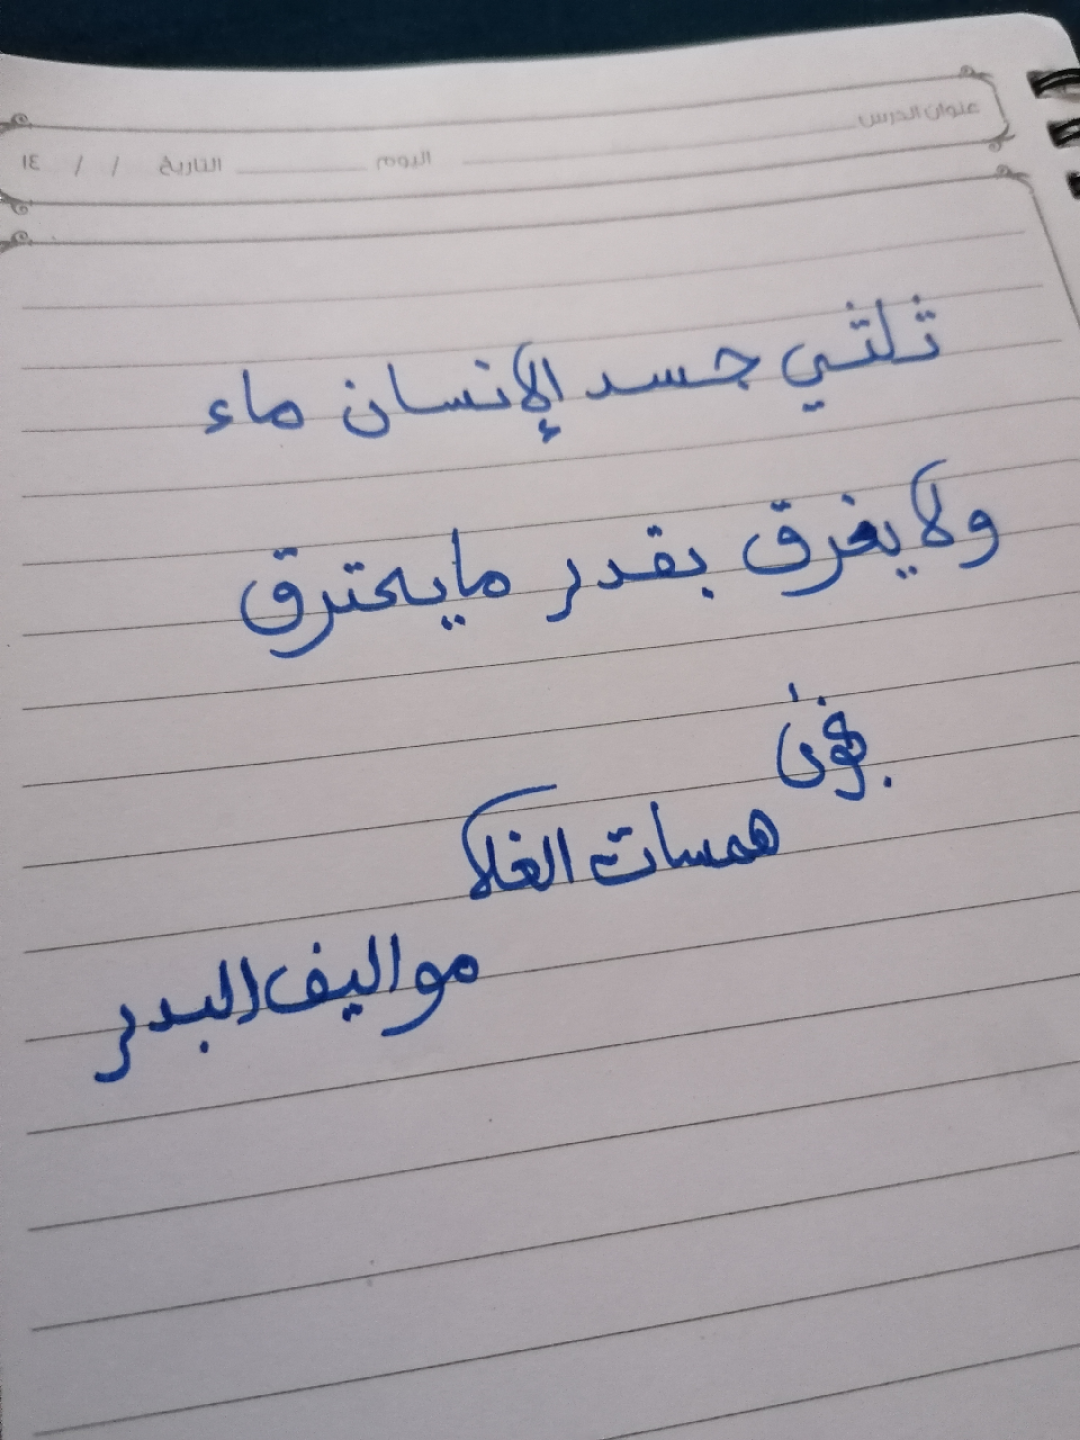 عنوان الدرس
اليوم التاريخ / / ١٤
ثلثي جسد الإنسان ماء
ولا يغرق بقدر ما يحترق
همسات الغلا
مواليف البدر